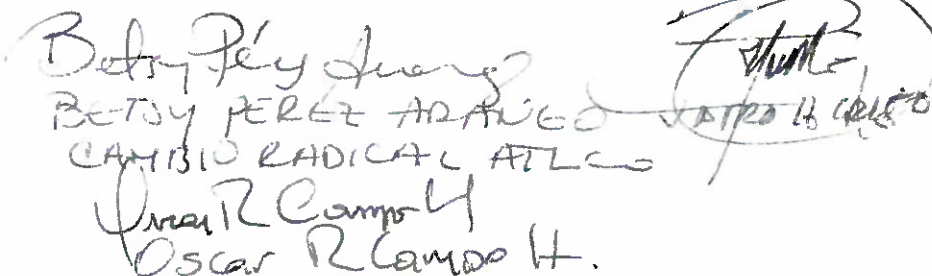 Betsy Pérez Arango
BETSY PEREZ ARANGO
CAMBIO RADICAL ATLCO
Oscar R Campo H
Oscar R Campo H.